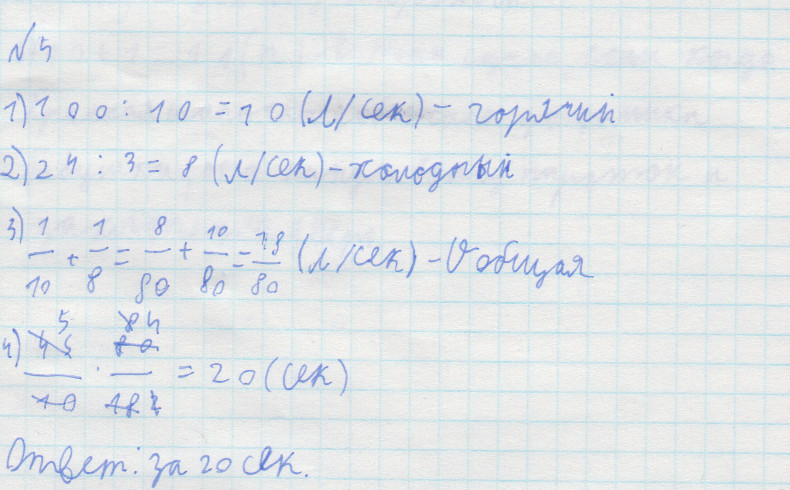 №5
1) 100 : 10 = 10 (л/сек) – горячий
2) 24 : 3 = 8 (л/сек) – холодный
3) 1/10 + 1/8 = 8/80 + 10/80 = 18/80 (л/сек) – V общая
4) 45/10 · 80/18 = 20 (сек)
Ответ: за 20 сек.